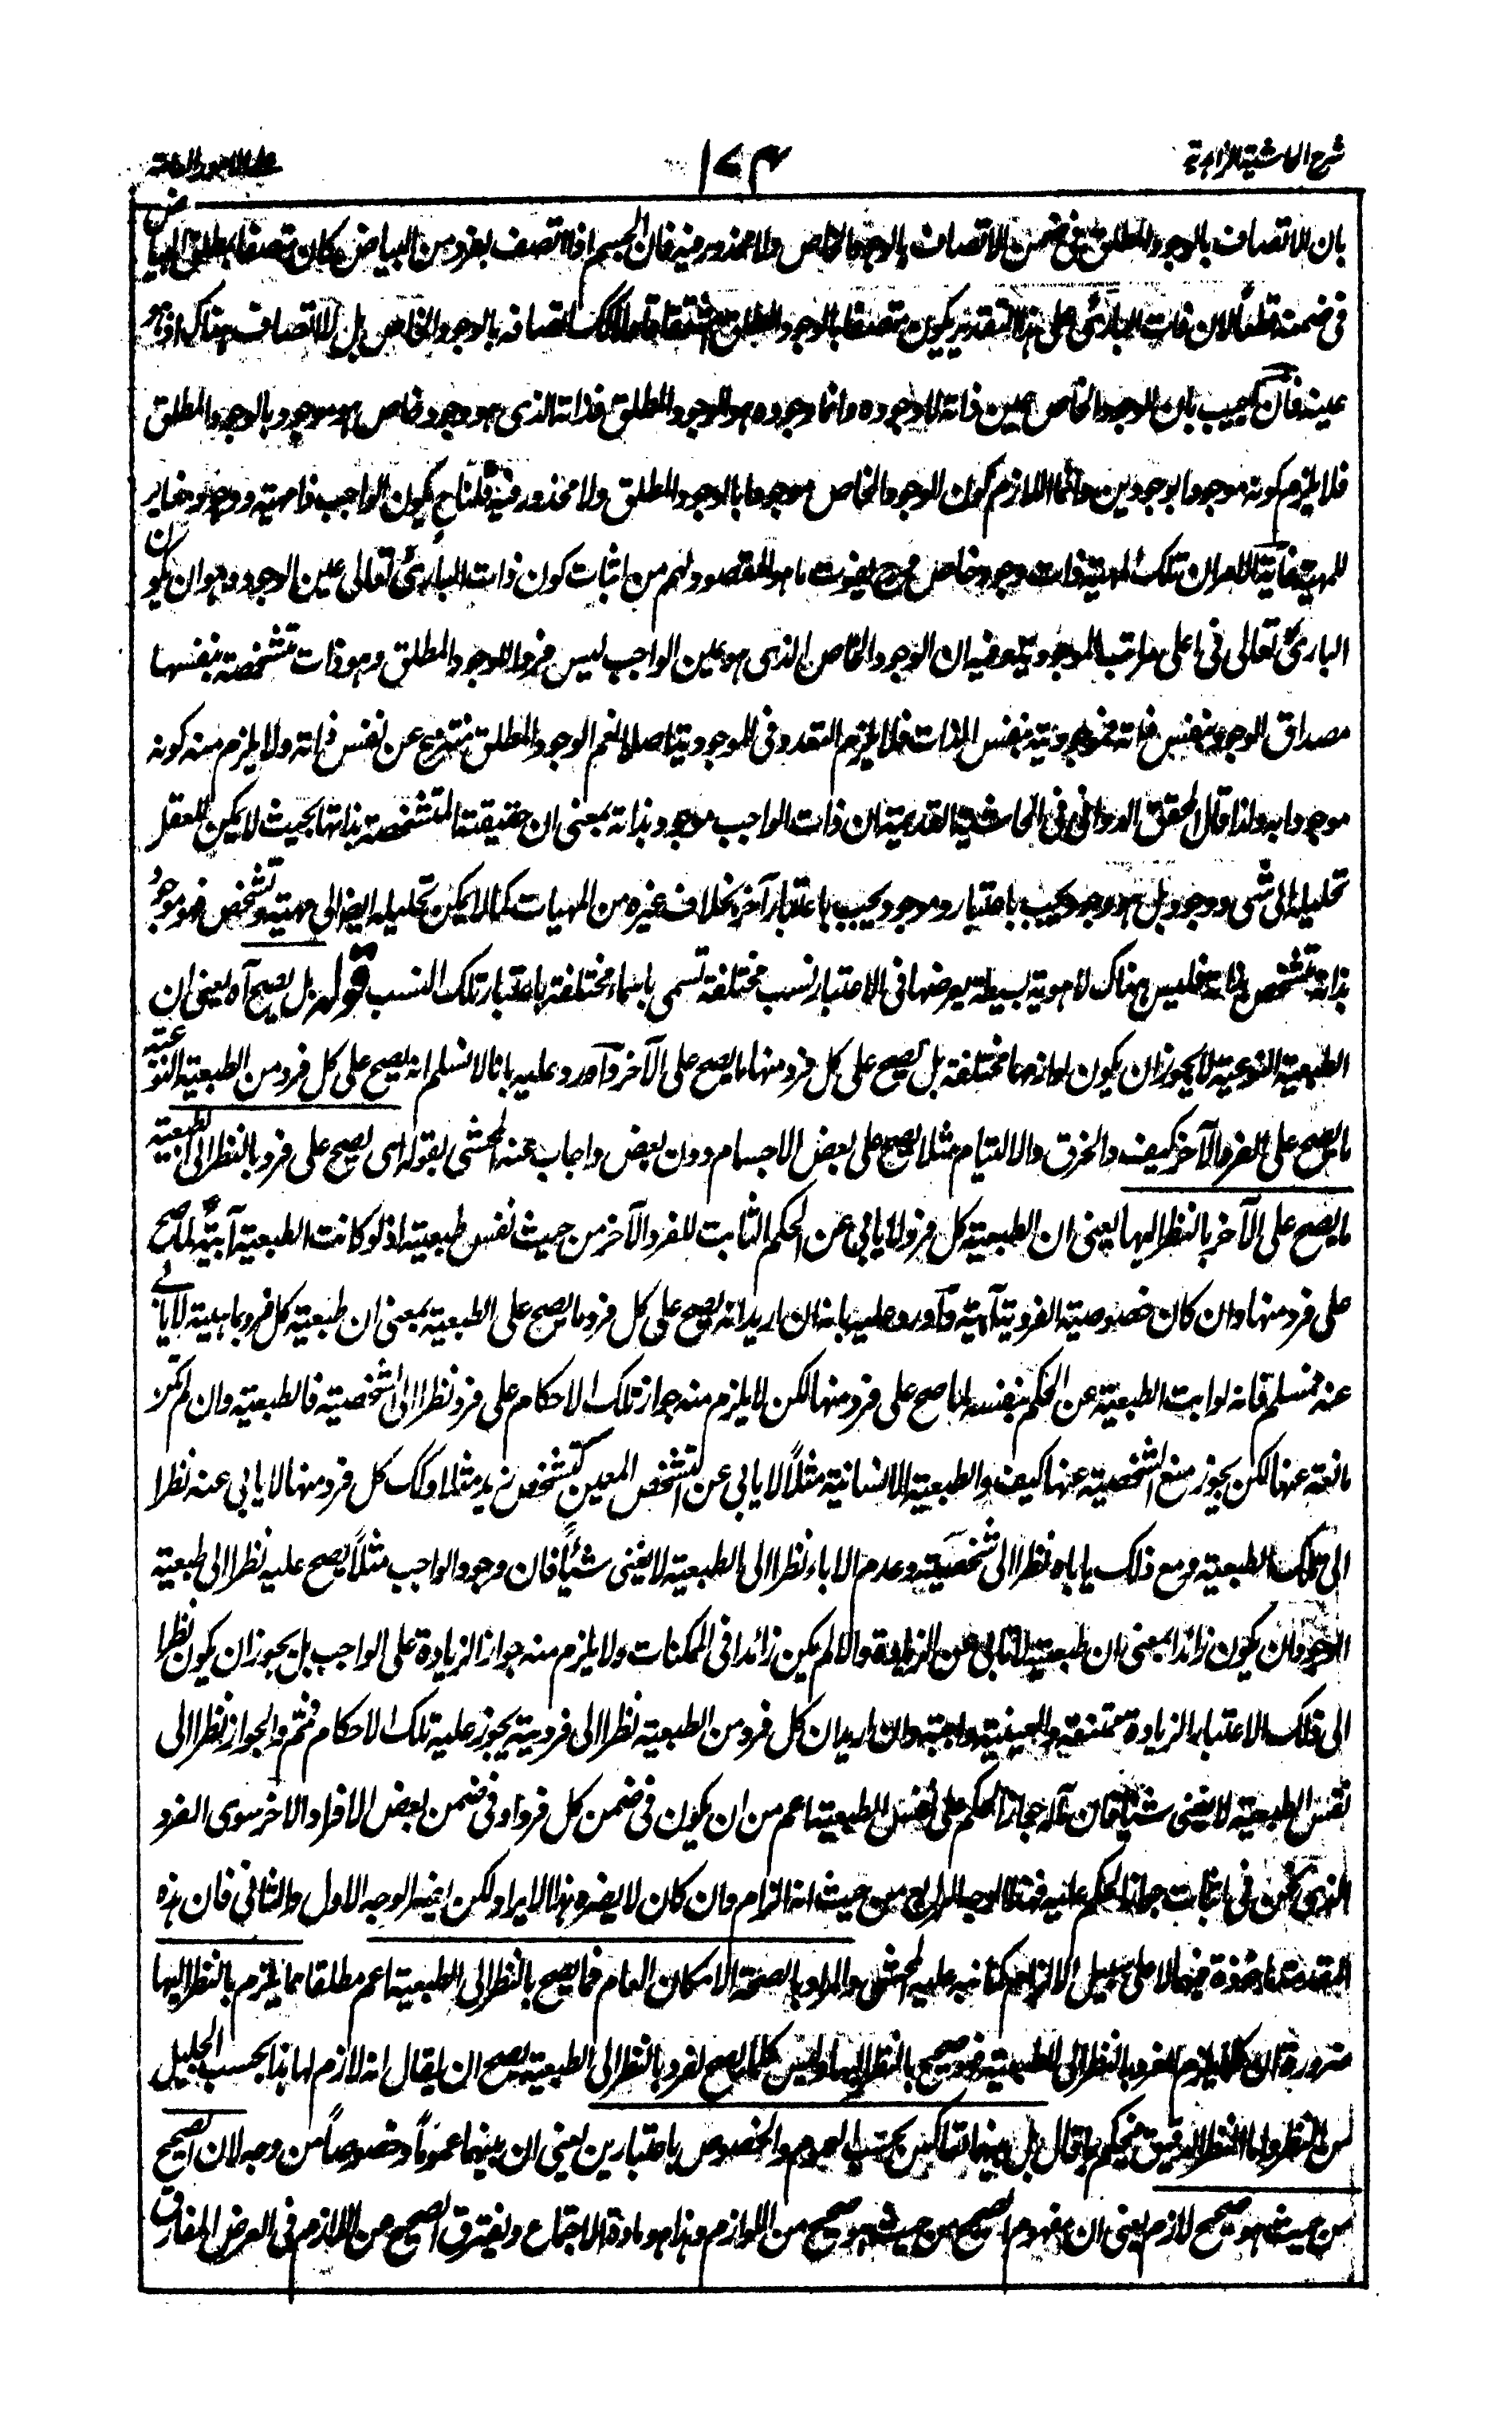 شرح الحاشية الزاهدية
١٧٣
على الامور العامة
بان الاتصاف بالوجود المطلق فى ضمن الاتصاف بالوجود الخاص ولا محذور فيه فان الجسم اذا اتصف بفرد من البياض كان متصفا بمطلق البياض
فى ضمنه قطعا لان ذات البارئ على هذا التقدير يكون متصفا بالوجود المطلق اتصافه بالوجود الخاص بل لا اتصاف هناك اذ هو
عينه فان اجيب بان الوجود الخاص عين ذاته لا وجوده وانما وجوده هو الوجود المطلق فذاته الذى هو وجود خاص هو موجود بالوجود المطلق
فلا يلزم كونه موجودا بوجودين وانما اللازم كون الوجود الخاص موجودا بالوجود المطلق ولا محذور فيه قلناح يكون الواجب ذا مهية ووجود مغاير
للمهية غاية الامر ان تلك المهية ذات وجود خاص فح يفوت ما هو المقصود لهم من اثبات كون ذات البارئ تعالى عين الوجود وهو ان يكون
البارئ تعالى فى اعلى مراتب الموجودية وفيه ان الوجود الخاص الذى هو عين الواجب ليس فردا للوجود المطلق وهو ذات متشخصة بنفسها
مصداق الوجود بنفس ذاته فموجوديته بنفس الذات فلا يلزم التعدد فى الموجودية اصلا نعم الوجود المطلق منتزع عن نفس ذاته ولا يلزم منه كونه
موجودا به ولذا قال المحقق الدوانى فى الحاشية القديمة ان ذات الواجب موجود بذاته بمعنى ان حقيقته المتشخصة بذاتها بحيث لا يمكن للعقل
تحليله الى شئ ووجود بل هو وجود بحيب باعتبار وموجود بحيب باعتبار آخر بخلاف غيره من المهيات كما لا يمكن تحليله ايضا الى مهية وتشخص فهو موجود
بذاته متشخص بذاته فليس هناك الا هوية بسيطة يعرضها فى الاعتبار نسب مختلفة تسمى باسماء مختلفة باعتبار تلك النسب قوله بل يصح آه يعنى ان
الطبيعة النوعية لا يجوز ان يكون لوازمها مختلفة بل يصح على كل فرد منها ما يصح على الآخر واورد عليه بانا لا نسلم انه يصح على كل فرد من الطبيعة النوعية
ما يصح على الفرد الآخر كيف والخرق والالتيام مثلا يصح على بعض الاجسام دون بعض واجاب عنه المحشى بقوله اى يصح على فرد بالنظر الى الطبيعة
ما يصح على الآخر بالنظر اليها يعنى ان الطبيعة كل فرد لا يابى عن الحكم الثابت للفرد الآخر من حيث نفس طبيعته اذ لو كانت الطبيعة آبية لما صح
على فرد منها وان كان خصوصية الفردية آبية واورد عليه بانه ان اريد انه يصح على كل فرد ما يصح على الطبيعة بمعنى ان طبيعة كل فرد بما هيية لا يابى
عنه فمسلم فانه لو ابت الطبيعة عن الحكم بنفسه لما صح على فرد منها لكن لا يلزم منه جواز تلك الاحكام على فرد نظرا الى الشخصية فالطبيعة وان لم تكن
مانعة عنها لكن يجوز منع الشخصية عنها كيف والطبيعة الانسانية مثلًا لا يابى عن التشخص المعين كتشخص زيد مثلا وكك كل فرد منها لا يابى عنه نظرا
الى تلك الطبيعة ومع ذلك ياباه نظرا الى شخصيته وعدم الاباء نظرا الى الطبيعة لا يغنى شيئًا فان وجود الواجب مثلًا يصح عليه نظرا الى طبيعة
الوجود ان يكون زائدا بمعنى ان طبيعته لا تابى عن الزيادة والا لم يكن زائدا فى الممكنات ولا يلزم منه جواز الزيادة على الواجب بل يجوز ان يكون نظرا
الى ذلك الاعتبار الزيادة ممتنعة والعينية واجبة وان اريد ان كل فرد من الطبيعة نظرا الى فرديته يجوز عليه تلك الاحكام فمم والجواز نظرا الى
نفس الطبيعة لا يغنى شيئا فان مآله جواز الحكم على نفس الطبيعة اعم من ان يكون فى ضمن كل فرد او فى ضمن بعض الافراد الاخر سوى الفرد
الذى نحن فى اثبات جواز الحكم عليه فهذا الوجه الرابع من حيث انه الزام وان كان لا يضره هذا الايراد لكن يضر الوجه الاول والثانى فان هذه
المقدمة ماخوذة فيهما لا على سبيل الالزام كما نبه عليه المحشى والمراد بالصحة الامكان العام فما يصح بالنظر الى الطبيعة اعم مطلقا مما يلزم بالنظر اليها
ضرورة ان كلما يلزم الفرد بالنظر الى الطبيعة فهو صحيح بالنظر اليها وليس كلما يصح لفرد بالنظر الى الطبيعة يصح ان يقال انه لازم لها هذا بحسب الجليل
من النظر واما النظر الدقيق فيحكم بما قال بل بينهما تعاكس بحسب العموم والخصوص باعتبارين يعنى ان بينهما عمومًا وخصوصًا من وجه لان الصحيح
من حيث هو صحيح لازم يعنى ان مفهوم الصحيح من حيث هو صحيح من اللوازم وهذا هو مادة الاجتماع ويفترق الصحيح عن اللازم فى العرض المفارق